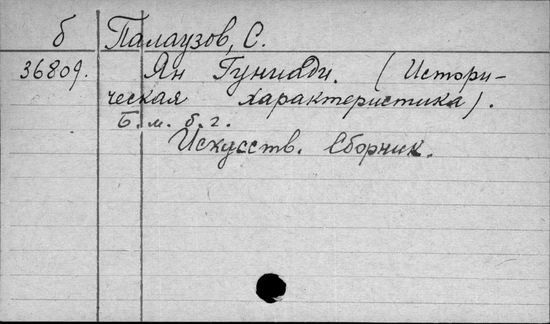 б Палаузов, С.
36809. Ян Гуниади. (Истори-
ческая характеристика).
Б. м. б. г.
Искусств. Сборник.